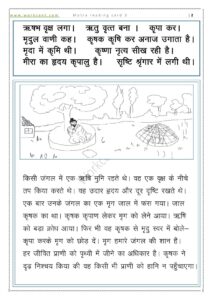 Matra reading card 8
ऋषभ वृक्ष लगा।  ऋतु वृत्त बना ।  कृपा कर।
मृदुल वाणी कह।  कृषक कृषि कर अनाज उगाता है।
मृदा में कृमि थी।  कृष्णा नृत्य सीख रही है।
मीरा का हृदय कृपालु है।  सृष्टि श्रृंगार में लगी थी।
किसी जंगल में एक ऋषि मुनि रहते थे। वह एक वृक्ष के नीचे
तप किया करते थे। वह उदार हृदय और दूर दृष्टि रखते थे।
एक बार उनके जंगल का एक मृग जाल में फस गया। जाल
कृषक का था। कृषक कृपाण लेकर मृग को लेने आया। ऋषि
को बड़ा क्रोध आया। फिर भी वह कृषक से मृदु स्वर में बोले–
कृपा करके मृग को छोड़ दें। मृग हमारे जंगल की शान है।
हर जीवित प्राणी को पृथ्वी में जीने का अधिकार है। कृषक ने
दृढ़ निश्चय किया की वह किसी भी प्राणी को हानि न पहुँचाएगा।